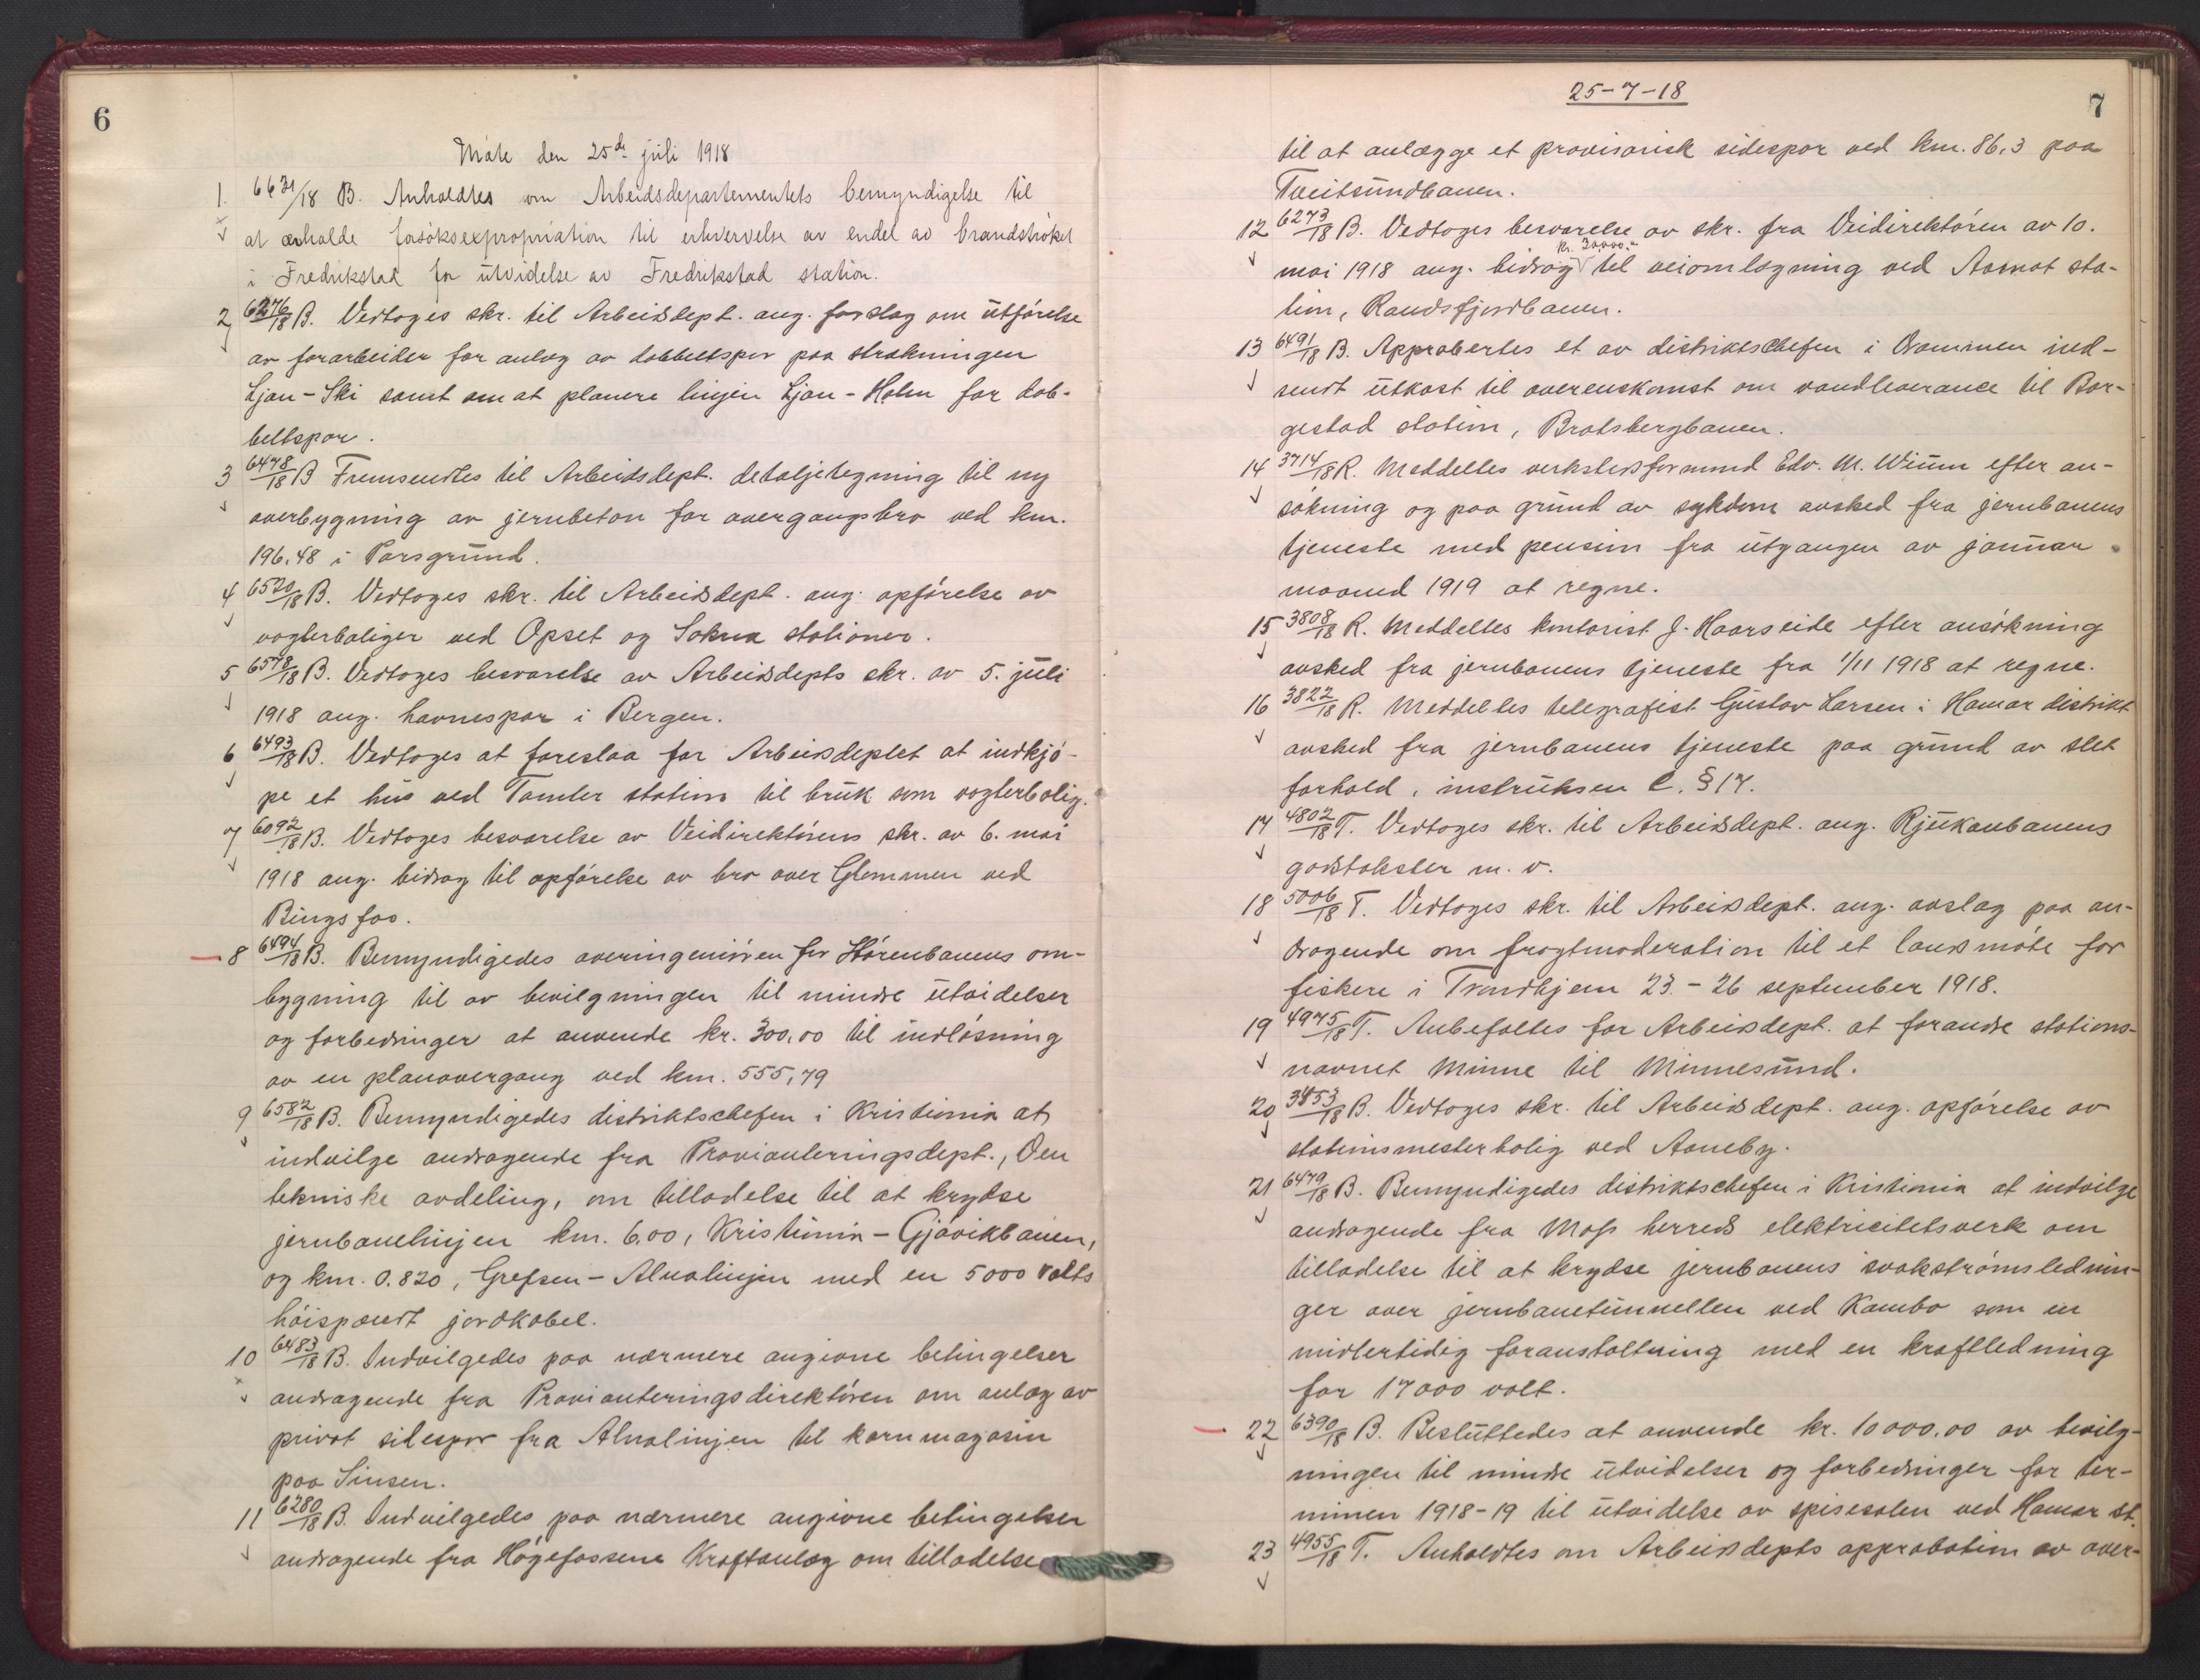 6
Møte den 25de juli 1918
1. 6631/18 B. Anholdtes om Arbeidsdepartementets bemyndigelse til
at avholde forsøksexpropriation til erhvervelse av endel av brandstrøket
i Fredrikstad for utvidelse av Fredrikstad station.
2 6276/18 B. Vedtoges skr. til Arbeidsdept. ang. forslag om utførelse
av forarbeider for anlæg av dobbeltspor paa strækningen
Ljan-Ski samt om at planere linjen Ljan-Holm for dob-
beltspor.
3 6478/18 B Fremsendtes til Arbeidsdept. detaljetegning til ny
overbygning av jernbeton for overgangsbro ved km.
196.48 i Porsgrund.
4 6520/18 B. Vedtoges skr. til Arbeidsdept. ang. opførelse av
vogterboliger ved Opset og Sokna stationer.
5 6578/18 B. Vedtoges besvarelse av Arbeidsdepts skr. av 5. juli
1918 ang. havnespor i Bergen.
6 6493/18 B. Vedtoges at foreslaa for Arbeidsdeptet at indkjø-
pe et hus ved Tomter station til bruk som vogterbolig.
7 6092/18 B. Vedtoges besvarelse av Veidirektørens skr. av 6. mai
1918 ang. bidrag til opførelse av bro over Glommen ved
Bingsfos.
8 6494/18 B. Bemyndigedes overingeniøren for Størenbanens om-
bygning til av bevilgningen til mindre utvidelser
og forbedringer at anvende kr. 300,00 til indløsning
av en planovergang ved km. 555,79
9 6582/18 B. Bemyndigedes distriktschefen i Kristiania at
indvilge andragende fra Provianteringsdept., Den
tekniske avdeling, om tilladelse til at krydse
jernbanelinjen km. 6.00, Kristiania-Gjøvikbanen,
og km. 0.820, Grefsen-Alnalinjen med en 5000 volts
høispændt jordkabel.
10 6483/18 B. Indvilgedes paa nærmere angivne betingelser
andragende fra Provianteringsdirektøren om anlæg av
privat sidespor fra Alnalinjen til kornmagasin
paa Sinsen.
11 6280/18 B. Indvilgedes paa nærmere angivne betingelser
andragende fra Høgefossene Kraftanlæg om tilladelse
25-7-18
7
til at anlægge et provisorisk sidespor ved km. 86,3 paa
Treitsundbanen.
12 6273/18 B. Vedtoges besvarelse av skr. fra Veidirektøren av 10.
kr. 30000.-
mai 1918 ang. bidrag til veiomlægning ved Aamot sta-
tion, Randsfjordbanen.
13 6491/18 B. Approbertes et av distriktschefen i Drammen ind-
sendt utkast til overenskomst om vandleverance til Bor-
gestad station, Bratsbergbanen.
14 3714/18 R. Meddeltes verkstedsformand Edv. M. Wium efter an-
søkning og paa grund av sykdom avsked fra jernbanens
tjeneste med pension fra utgangen av januar
maaned 1919 at regne.
15 3808/18 R. Meddeltes kontorist J. Haarseide efter ansøkning
avsked fra jernbanens tjeneste fra 1/11 1918 at regne.
16 3822/18 R. Meddeltes telegrafist Gustav Larsen i Hamar distrikt
avsked fra jernbanens tjeneste paa grund av slet
forhold, instruksen C. §17.
17 4802/18 T. Vedtoges skr. til Arbeidsdept. ang. Rjukanbanens
godstakster m. v.
18 5006/18 T. Vedtoges skr. til Arbeidsdept. ang. avslag paa an-
dragende om fragtmoderation til et landsmøte for
fiskere i Trondhjem 23.-26 september 1918.
19 4975/18 T. Anbefaltes for Arbeidsdept. at forandre stations-
navnet Minne til Minnesund.
20 3853/18 B. Vedtoges skr. til Arbeidsdept. ang. opførelse av
stationsmesterbolig ved Aaneby.
21 6479/18 B. Bemyndigedes distriktschefen i Kristiania at indvilge
andragende fra Moss herreds elektricitetsverk om
tilladelse til at krydse jernbanens svakstrømslednin-
ger over jernbanetunnellen ved Kambo som en
midlertidig foranstaltning med en kraftledning
for 17000 volt.
22 6390/18 B. Besluttedes at anvende kr. 10000.00 av bevilg-
ningen til mindre utvidelser og forbedringer for ter-
minen 1918-19 til utvidelse av spisesalen ved Hamar st.
23 4955/18 T. Anholdtes om Arbeidsdepts approbation av over-